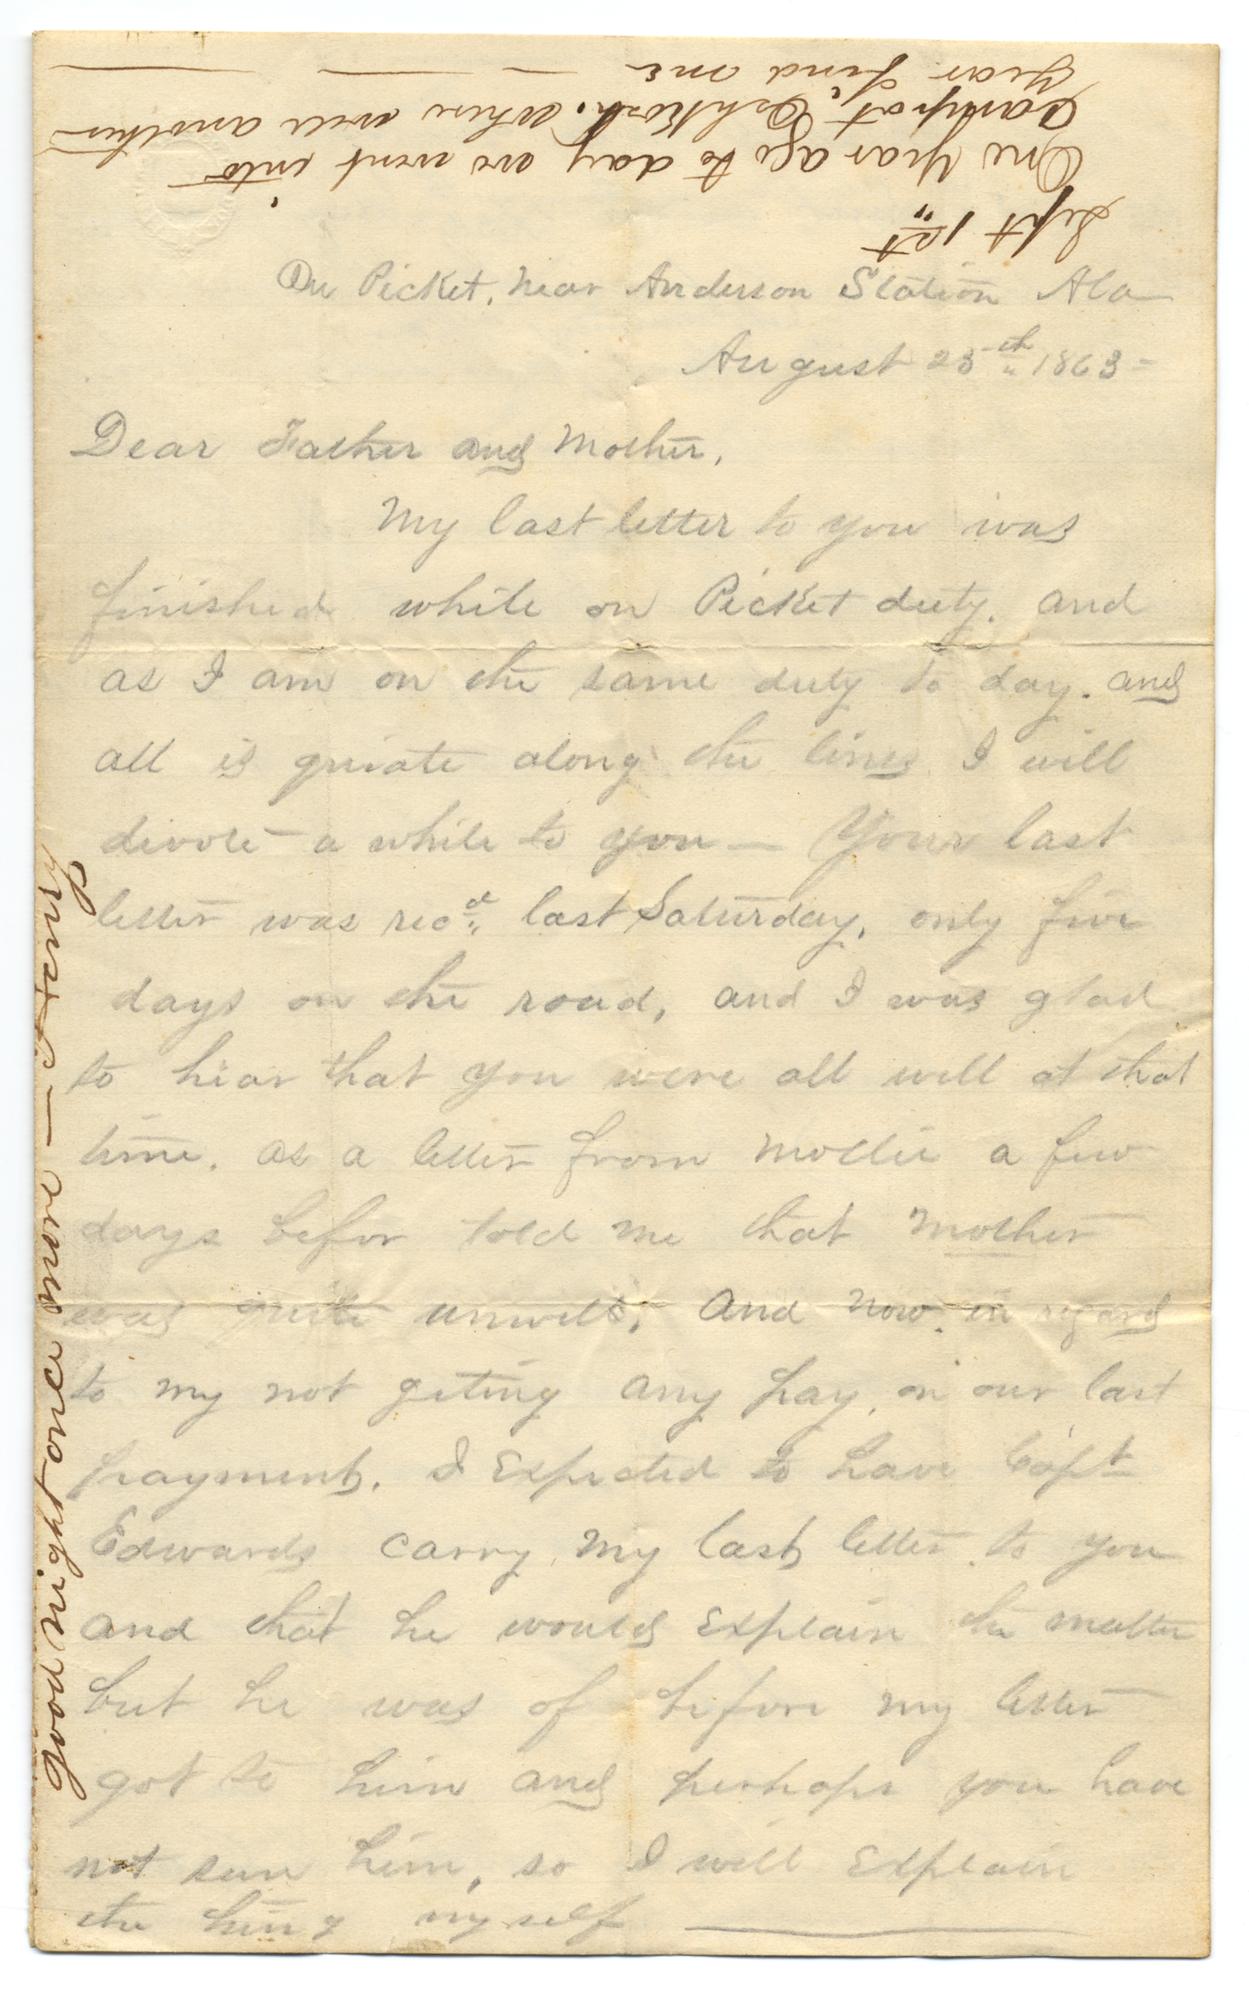 Sept 1st
One year ago to day we went into
Camp at Oshkosh. Where will another
year find me
On Picket, near Anderson Station Ala
August 25th 1863-
Dear Father and Mother,
My last letter to you was
finished while on Picket duty. and
as I am on the same duty to day. and
all is quiate along the lines I will
divote a while to you — Your last
letter was recd. last Saturday, only five
days on the road, and I was glad
to hear that you were all well at that
time. as a letter from Mollie a few
days befor told me that Mother
was quite unwell. And now in regard
to my not geting any pay, on our last
payment. I Expected to have Capt
Edwards carry my last letter to you
and that he would Explain the matter
but he was of before my letter
got to him and perhaps you have
not seen him, so I will Explain
the thing myself
good night once more — Henry